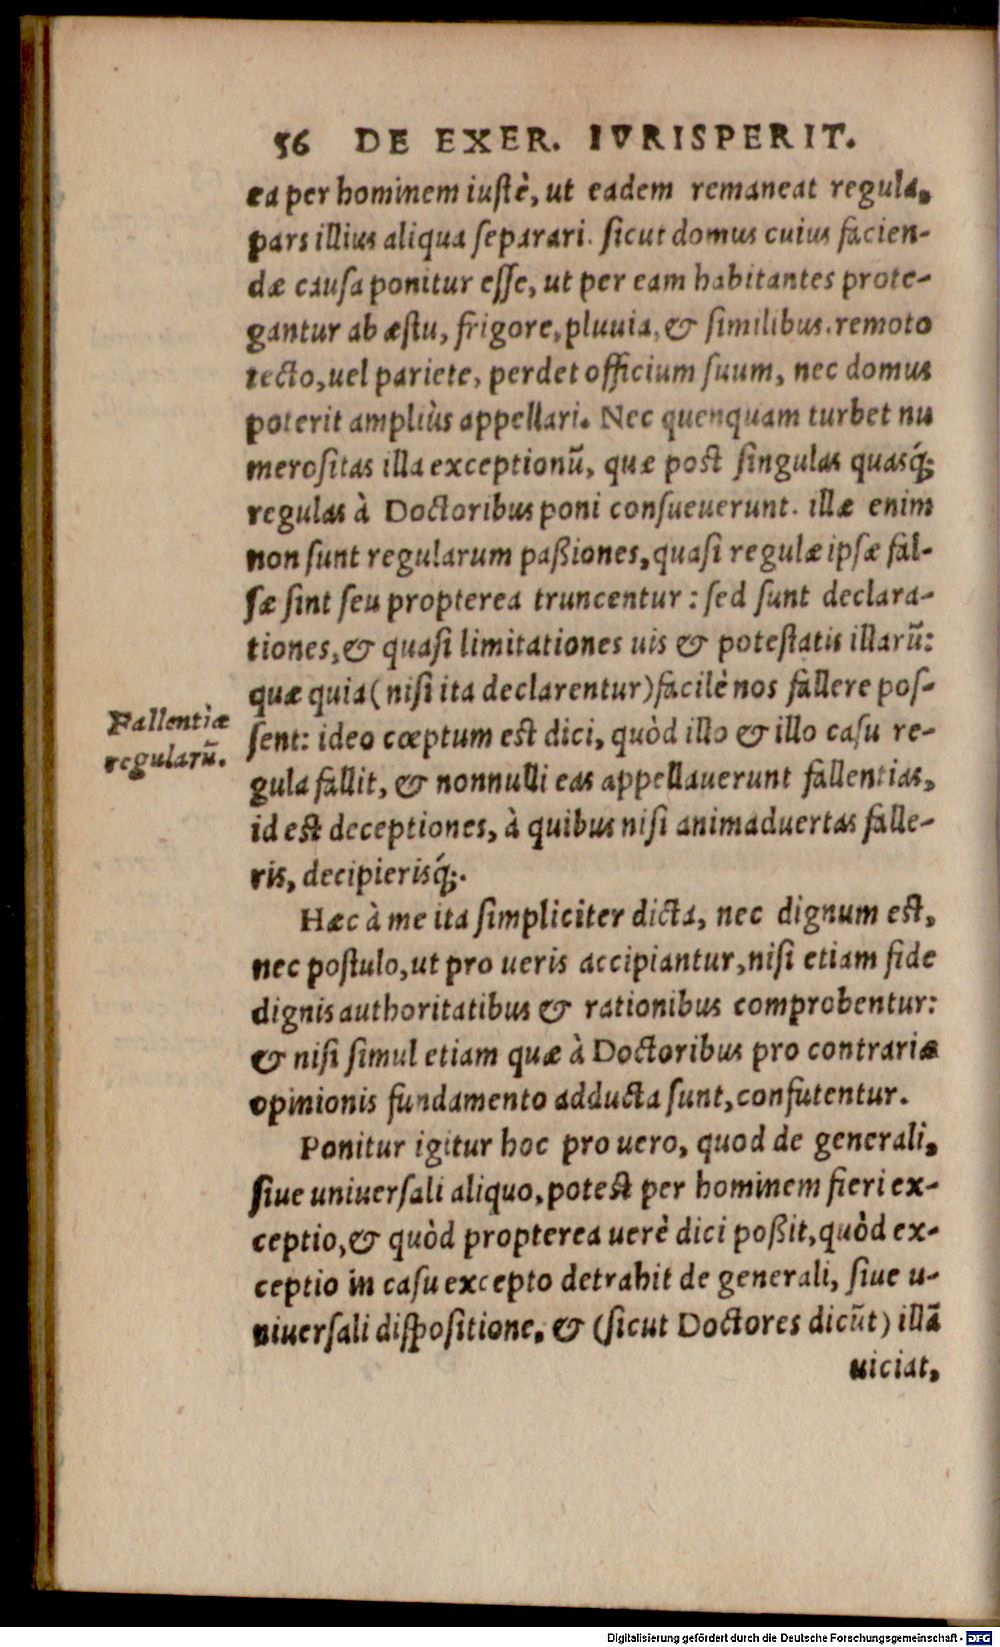 56 DE EXER. IVRISPERIT.
ea per hominem iustè, ut eadem remaneat regula,
pars illius aliqua separari. sicut domus cuius facien-
dæ causa ponitur esse, ut per eam habitantes prote-
gantur ab æstu, frigore, pluuia, & similibus. remoto
tecto, uel pariete, perdet officium suum, nec domus
poterit ampliùs appellari. Nec quenquam turbet nu
merositas illa exceptionũ, quæ post singulas quasq́;
regulas à Doctoribus poni consueuerunt. illæ enim
non sunt regularum paßiones, quasi regulæ ipsæ fal-
sæ sint seu propterea truncentur: sed sunt declara-
tiones, & quasi limitationes uis & potestatis illarũ:
quæ quia (nisi ita declarentur) facilè nos fallere pos-
Fallentiæ
regularũ.
sent: ideo cœptum est dici, quòd illo & illo casu re-
gula fallit, & nonnulli eas appellauerunt fallentias,
id est deceptiones, à quibus nisi animaduertas falle-
ris, decipierisq́;.
Hæc à me ita simpliciter dicta, nec dignum est,
nec postulo, ut pro ueris accipiantur, nisi etiam fide
dignis authoritatibus & rationibus comprobentur:
& nisi simul etiam quæ à Doctoribus pro contrariæ
opinionis fundamento adducta sunt, confutentur.
Ponitur igitur hoc pro uero, quod de generali,
siue uniuersali aliquo, potest per hominem fieri ex-
ceptio, & quòd propterea uerè dici poßit, quòd ex-
ceptio in casu excepto detrahit de generali, siue u-
niuersali dispositione, & (sicut Doctores dicũt) illã
uiciat,
Digitalisierung gefördert durch die Deutsche Forschungsgemeinschaft - DFG